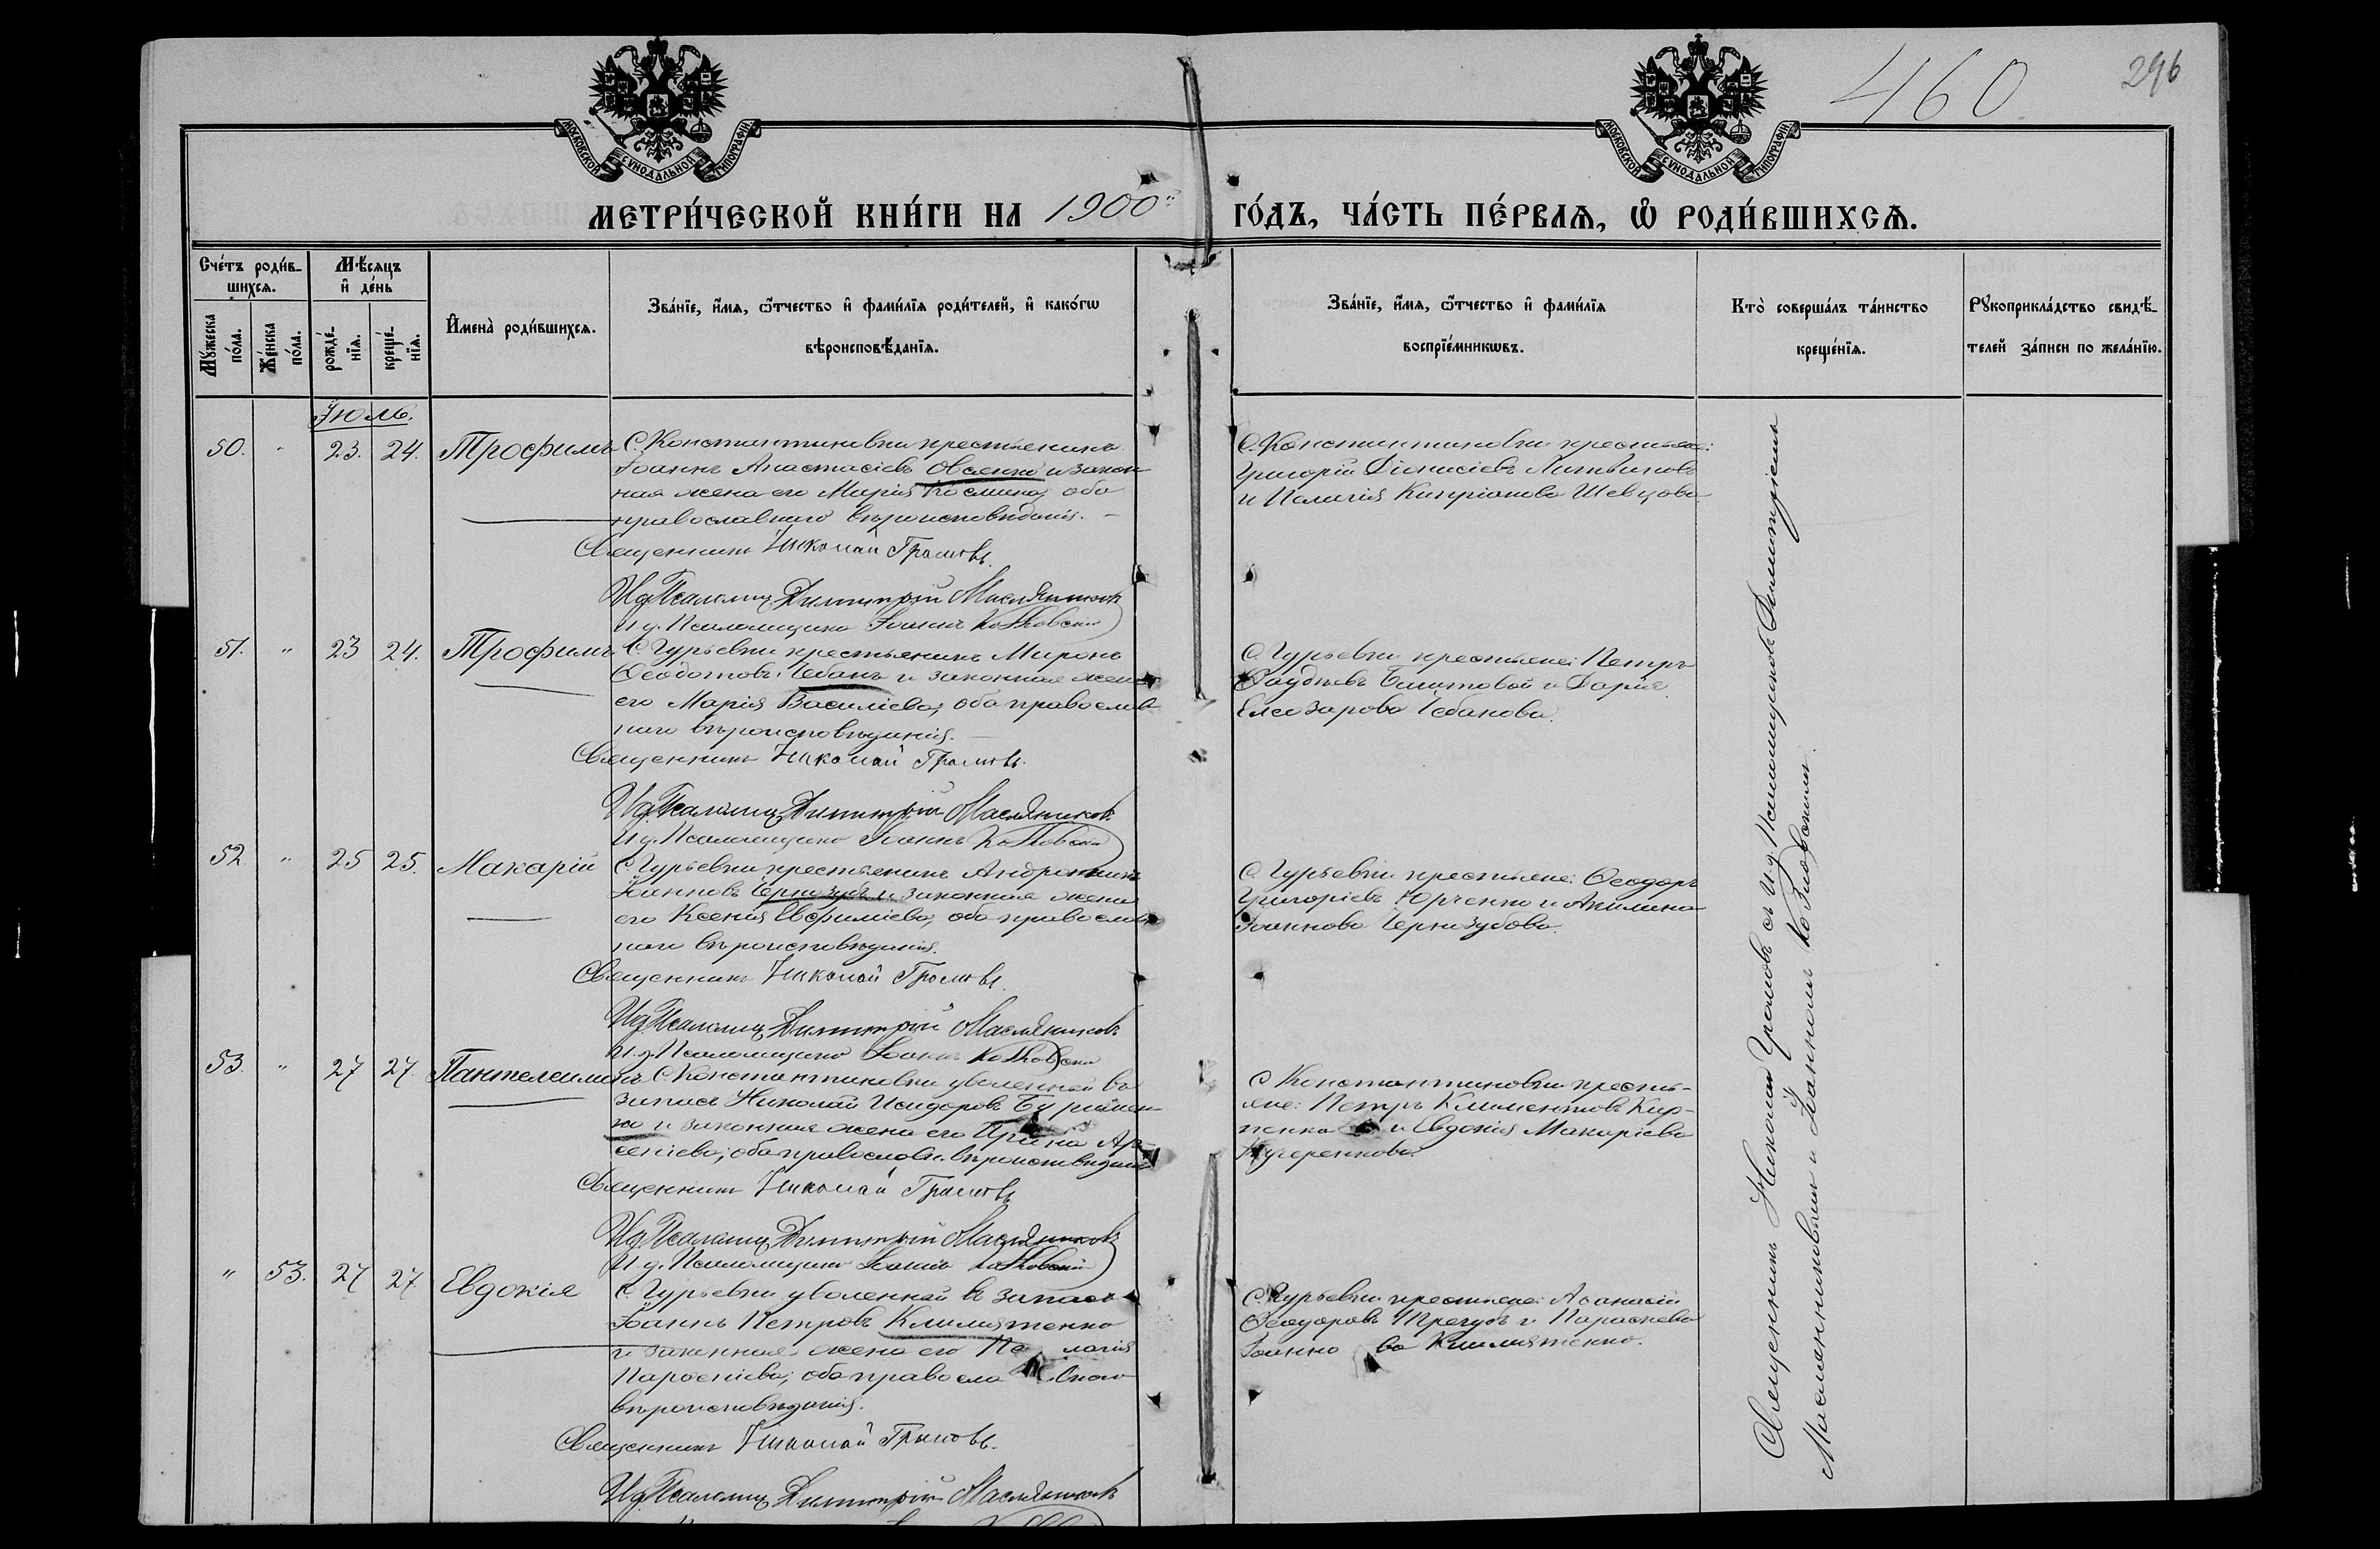 460
296
МОСКОВСКОЙ СѴНОДАЛЬНОЙ ТИПОГРАФІИ
МОСКОВСКОЙ СѴНОДАЛЬНОЙ ТИПОГРАФІИ
МЕТРИ́ЧЕСКОЙ КНИ́ГИ НА 1900й ГО́ДЪ, ЧА́СТЬ ПЕ́РВАѦ, Ѽ РОДИ́ВШИХСѦ.
Сче́тъ роди́в-
шихсѧ.
Мѣ́сѧцъ
и҆ де́нь
Мꙋ́жеска
по́ла.
Же́нска
по́ла.
рожде́-
нїѧ.
креще́-
нїѧ.
И҆мена̀ роди́вшихсѧ.
Зва́нїе, и҆́мѧ, ѻ҆́тчество и҆ фами́лїѧ роди́телей, и҆ како́гѡ
вѣроисповѣ́данїѧ.
Зва́нїе, и҆́мѧ, ѻ҆́тчество и҆ фами́лїѧ
воспрїе́мникѡвъ.
Кто̀ соверша́лъ та́инство
креще́нїѧ.
Рꙋкоприкла́дство свидѣ́-
телей за́писи по жела́нїю.
Іюль.
50. " 23. 24. Трофимъ
С. Константиновки крестьянинъ
Іоаннъ Анастасіевъ Овсенко и закон
ная жена его Марія Космина, оба
православнаго вѣроисповѣданія.
Священникъ Николай Громовъ.
И д. Псаломщ. Димитрій Масляниковъ
И д. Псаломщика Іоаннъ
С. Константиновки крестьяне:
Григорій Діонисіевъ Литвиновъ
и Пелагія Кипріанова Шевцова
51. " 23 24. Трофимъ
С. Гурьевки крестьянинъ Миронъ
Ѳеодотовъ Чебанъ и законная жена
его Марія Василіева, оба православ
наго вѣроисповѣданія.
Священникъ Николай Громовъ.
И д. Псаломщ. Димитрій Масляниковъ
И д. Псаломщика Іоаннъ
С. Гурьевки крестьяне: Петръ
и Дарія
Елеозарова Чебанова.
52 " 25 25. Макарій
С. Гурьевки крестьянинъ Андроникъ
Іоанновъ Чернозубъ и законная жена
его Ксенія Евфиміева, оба православ
наго вѣроисповѣданія.
Священникъ Николай Громовъ.
И д. Псаломщ. Димитрій Масляниковъ
И. д. Псаломщика Іоаннъ
С. Гурьевки крестьяне: Ѳеодоръ
Григоріевъ Юрченко и Акилина
Іоаннова Чернозубова.
53. " 27 27. Пантелеимонъ
С. Константиновки уволенный въ
запасъ Николай Исидоровъ
ко и законная жена его Ирина Ар-
сеніева; оба православн. вѣроисповѣданія
Священникъ Николай Громовъ
И д. Псаломщ. Димитрій Масляниковъ
И. д. Псаломщика Іоаннъ
С Константиновки кресть-
яне: Петръ Климентовъ Кир-
пенко и Евдокія Макаріева
Кучеренкова.
" 53. 27 27 Евдокія
С. Гурьевки уволенный въ запасъ
Іоаннъ Петровъ Климятенко
и законная жена его Пелагія
Парѳеніева; оба православнаго
вѣроисповѣданія.
Священникъ Николай Громовъ.
И д. Псаломщ. Димитрій Масляниковъ
С. Гурьевки крестьяне: Аѳанасій
Ѳеодоровъ Трегубъ и Параскева
Іоаннова Климятенко.
Священникъ Николай Громовъ съ И. д. Псаломщиковъ Димитріемъ
Масляниковымъ и Іоанномъ